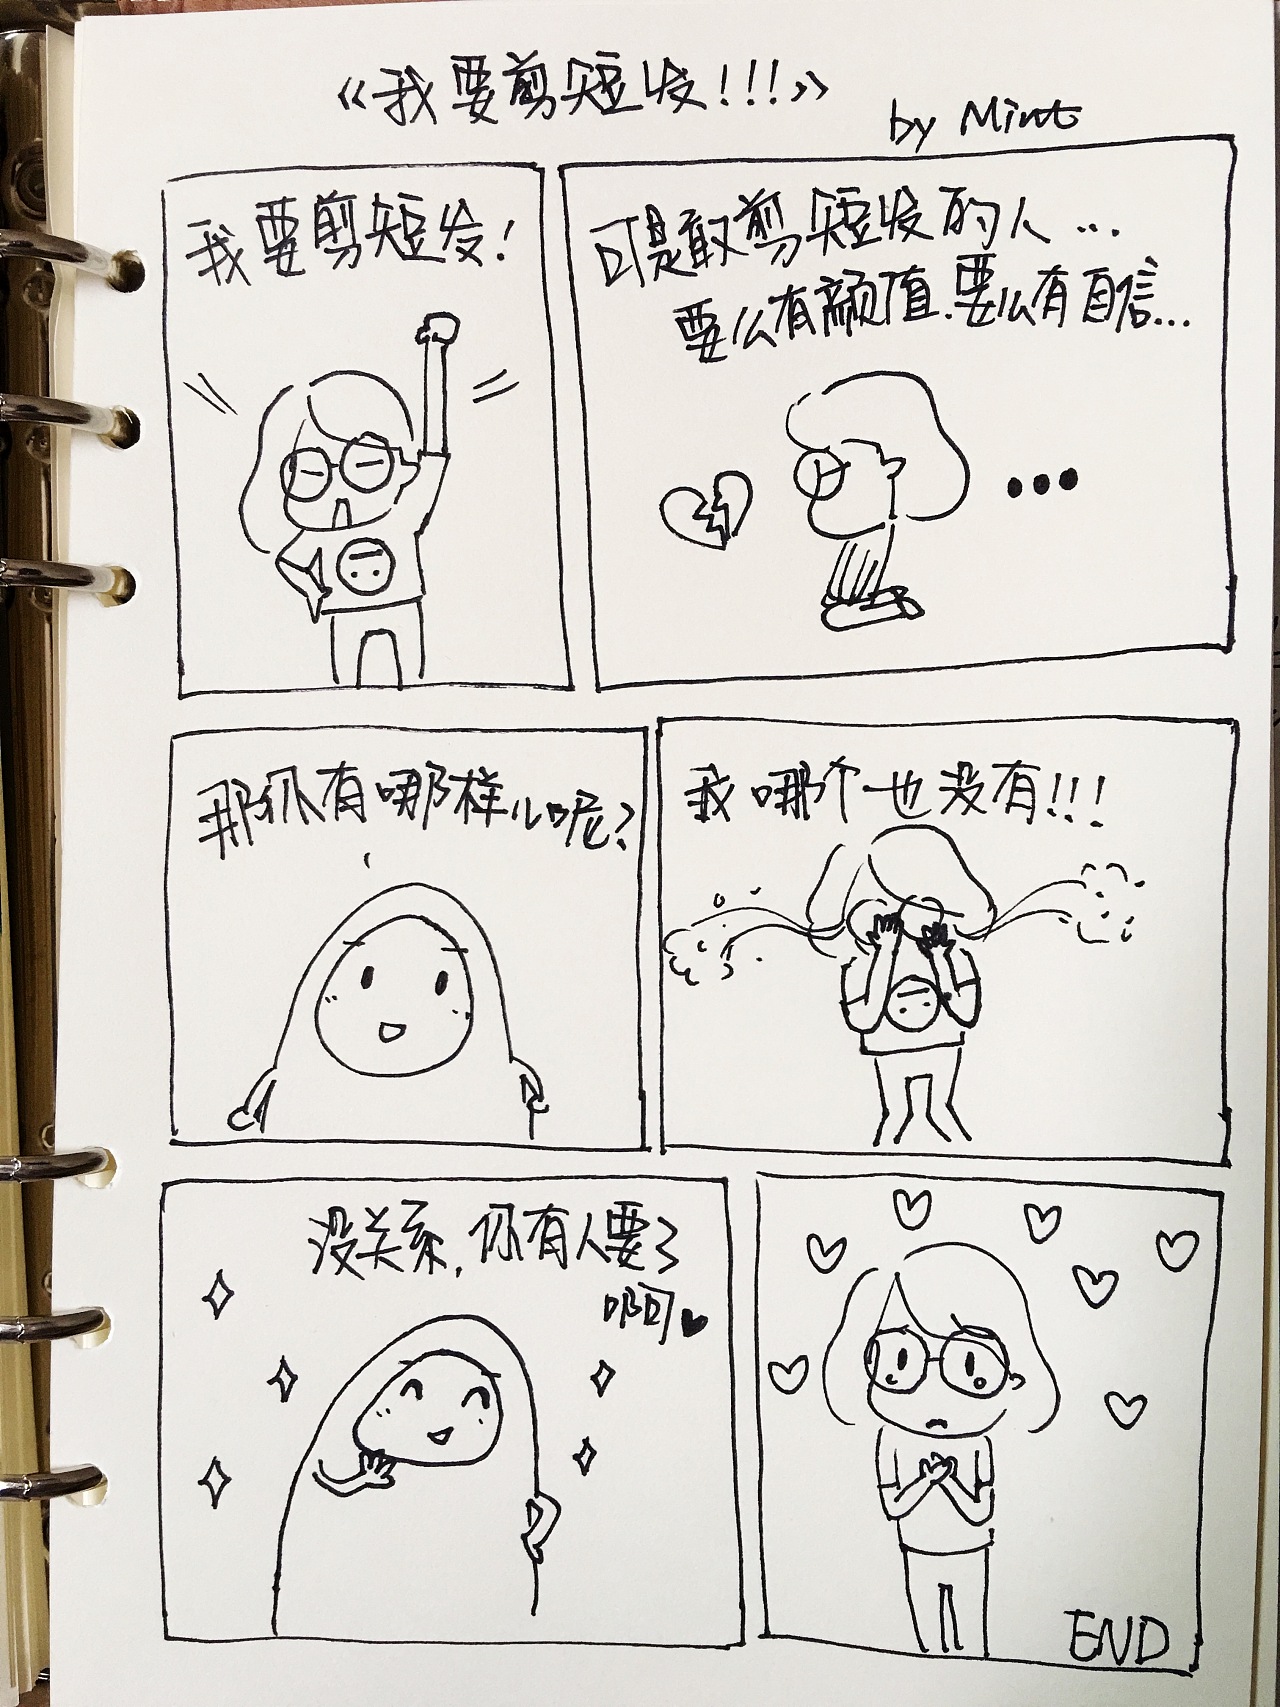 《我要剪短发!!!》
by Mint
我要剪短发!
可是敢剪短发的人...
要么有颜值.要么有自信...
那你有哪样儿呢?
我哪个也没有!!!
没关系,你有人要了
啊♥
END